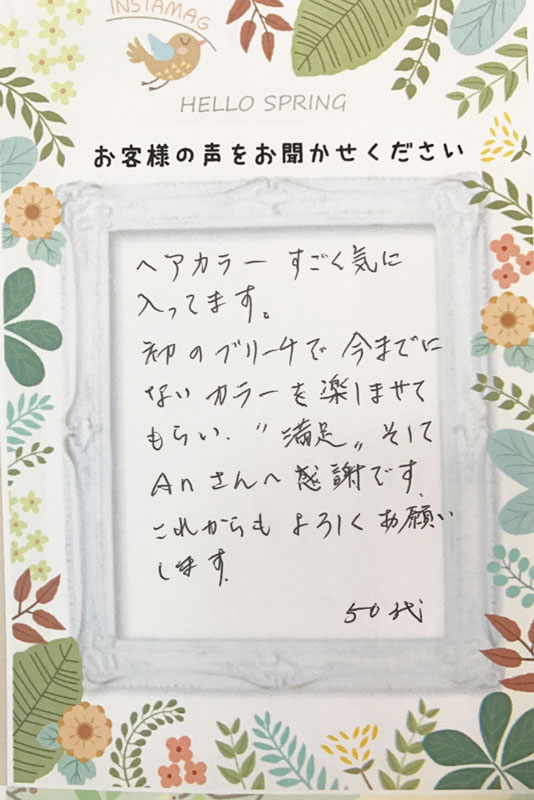 INSTAMAG
HELLO SPRING
お客様の声をお聞かせください
ヘアカラー すごく気に
入ってます。
初のブリーチで 今までに
ないカラーを楽しませて
もらい、〝満足〟そして
Anさんへ感謝です。
これからもよろしくお願い
します。
50代